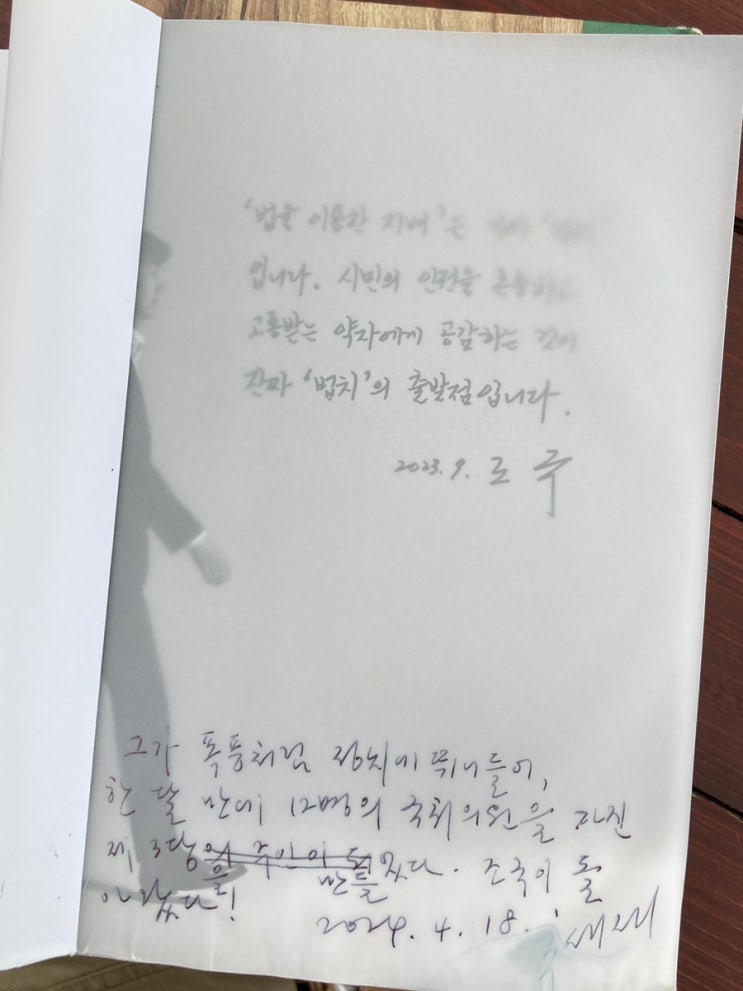 '법을 이용한 지배'는
입니다. 시민의 인권을 존중하고
고통받는 약자에게 공감하는 것이
진짜 '법치'의 출발점입니다.
2023. 9. 조 국
그가 폭풍처럼 정치에 뛰어들어,
한 달 만에 12명의 국회의원을 가진
제 3당의 주인이 되었다. 조국이 돌
을 만들
아왔다!
2024. 4. 18.